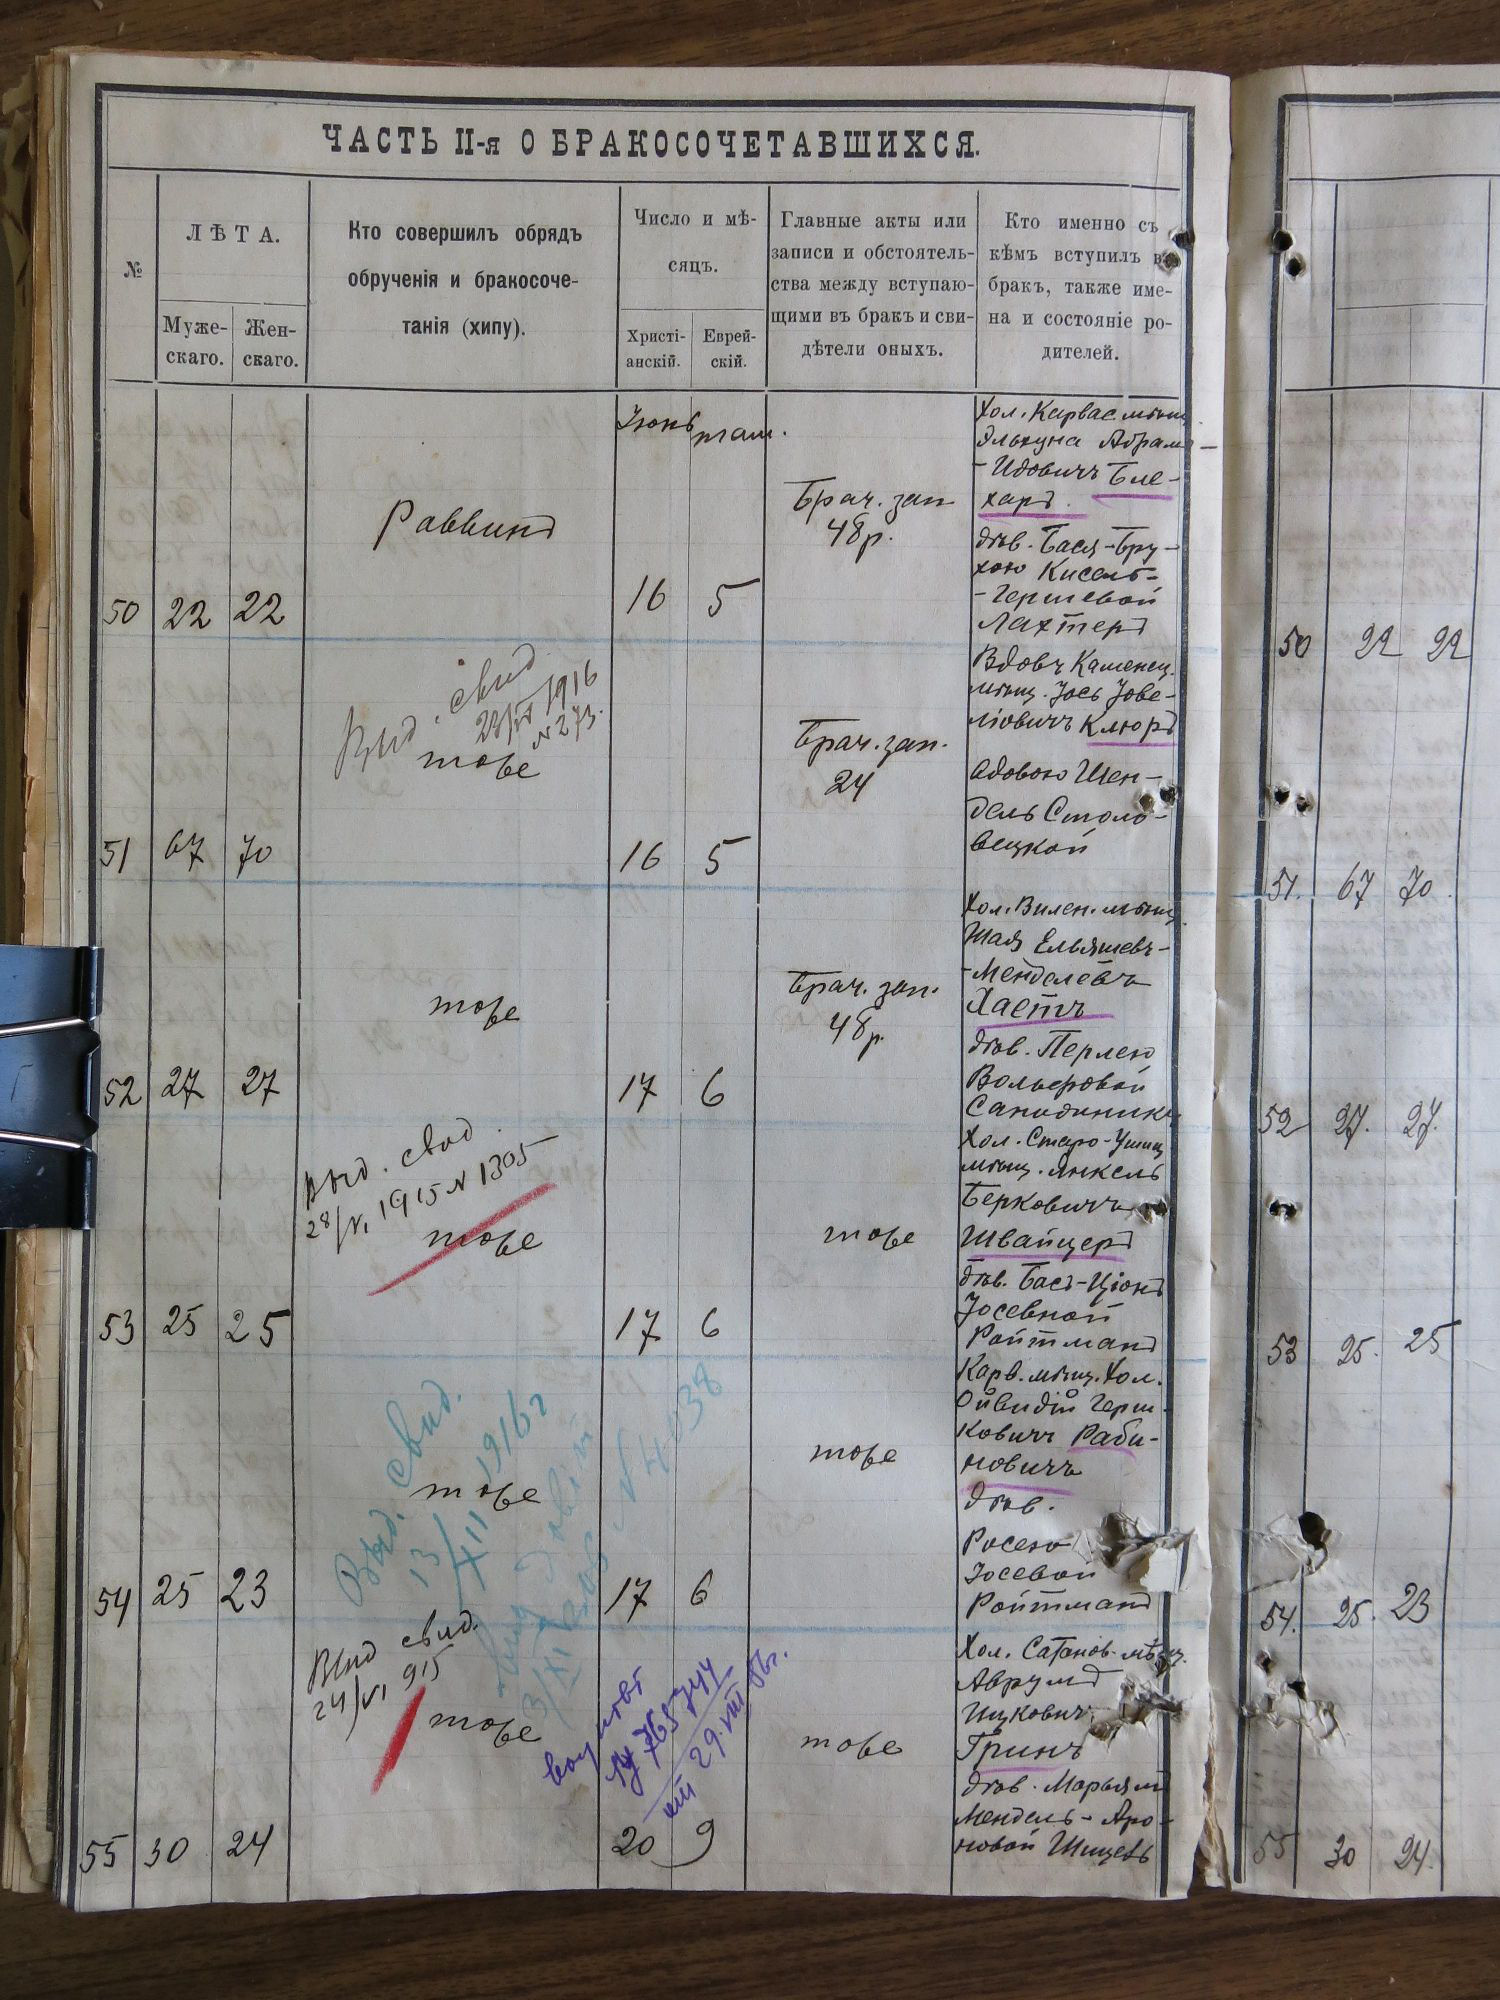 ЧАСТЬ II-я О БРАКОСОЧЕТАВШИХСЯ.
№
ЛѢТА.
Муже-
скаго.
Жен-
скаго.
Кто совершилъ обрядъ
обрученія и бракосоче-
танія (хипу).
Число и мѣ-
сяцъ.
Христі-
анскій.
Еврей-
скій.
Главные акты или
записи и обстоятель-
ства между вступаю-
щими въ бракъ и сви-
дѣтели оныхъ.
Кто именно съ
кѣмъ вступилъ въ
бракъ, также име-
на и состояніе ро-
дителей.
Іюнь там.
50 22 22
Раввинъ
16 5
Брач. зап
48 р.
Хол. Карвас. мѣщ.
Абрам-
-Идовичъ Бле-
харъ.
дѣв. Бася-Бру-
хою Кисель-
-Гершевой
Лахтеръ
51 67 70
Выд. свид.
1916
№ 273.
тоже
16 5
Брач. зап.
24
Вдовъ Каменец.
мѣщ. Іось Іове-
ліовичъ Клюръ
вдовою Шен-
дель Столо-
вецкой
52 27 27
тоже
17 6
Брач. зап.
48 р.
Хол. Вилен. мѣщ.
Шая Ельяшевъ-
-Менделевъ
Хаетъ
дѣв. Перлею
Вольфовой
53 25 25
Выд. свид.
28/VI 1915 № 1305
тоже
17 6
тоже
Хол. Старо-Ушиц
мѣщ. Янкель
Берковичъ
Швайцеръ
дѣв. Бась-Ціонъ
Іосевной
Ройтманъ
54 25 23
Выд. свид.
13/XII 1916 г
№ 4038
тоже
17 6
тоже
Карв. мѣщ. Хол.
Ойвидій Герш-
ковичъ Раби-
новичъ
дѣв.
Росею
Іосевой
Ройтманъ
55 30 24
Выд свид.
24/VI 915
тоже
765744
29.VIII
20 9
тоже
Хол. Сатанов. мѣщ.
Аврумъ
Ицковичъ
Гринъ
дѣв. Марьямъ
Мендель-Аро-
новой
50 22 22
51. 67 70.
52 27. 27.
53 25. 25
54. 25. 23
55 30 24.